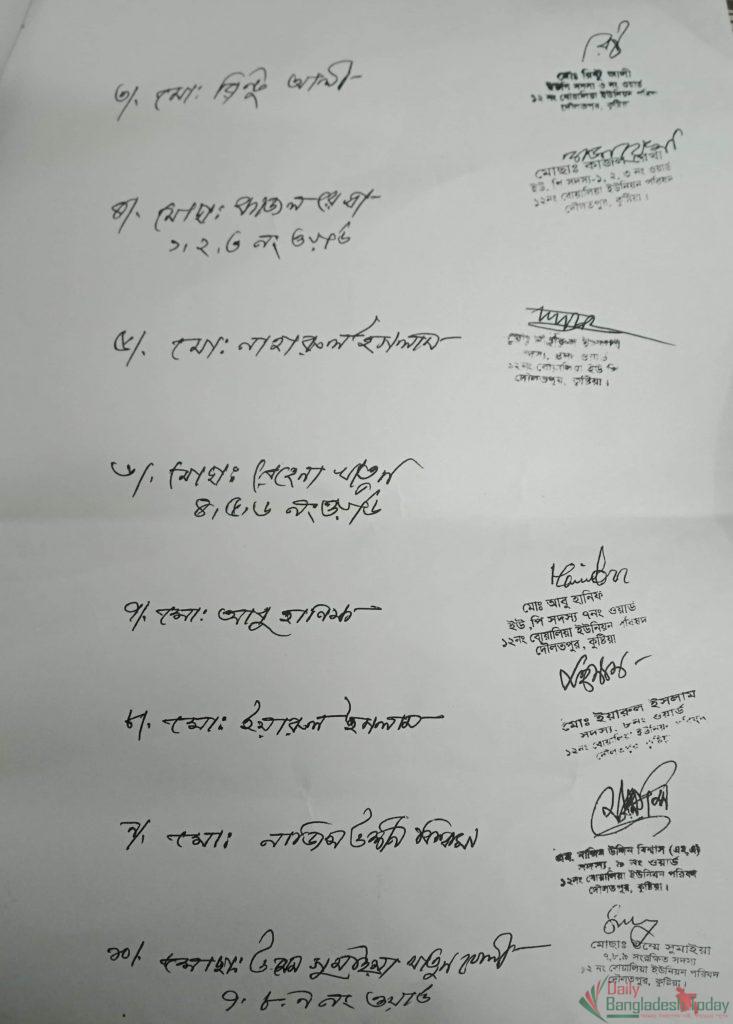 ৩। মোঃ রিন্টু আলী
মোঃ রিন্টু আলী
সদস্য ৩ নং ওয়ার্ড
১২ নং বোয়ালিয়া ইউনিয়ন
দৌলতপুর, কুষ্টিয়া
৪। মোছাঃ কাজল রেখা
১, ২, ৩ নং ওয়ার্ড
মোছাঃ কাজল রেখা
ইউ, পি সদস্য-১, ২, ৩ নং ওয়ার্ড
১২নং বোয়ালিয়া ইউনিয়ন পরিষদ
দৌলতপুর, কুষ্টিয়া।
৫। মোঃ নাহারুল ইসলাম
সদস্য, ওয়ার্ড
১২নং বোয়ালিয়া ইউ পি
দৌলতপুর, কুষ্টিয়া।
৬। মোছাঃ রেহেনা খাতুন
৪, ৫, ৬ নং ওয়ার্ড
৭। মোঃ আবু হানিফ
মোঃ আবু হানিফ
ইউ, পি সদস্য ৭নং ওয়ার্ড
১২নং বোয়ালিয়া ইউনিয়ন পরিষদ
দৌলতপুর, কুষ্টিয়া
৮। মোঃ ইয়ারুল ইসলাম
মোঃ ইয়ারুল ইসলাম
সদস্য, ৮নং ওয়ার্ড
১২নং বোয়ালিয়া ইউনিয়ন পরিষদ
দৌলতপুর কুষ্টিয়া
৯। মোঃ নাজিম উদ্দীন বিশ্বাস
নাজিম উদ্দিন বিশ্বাস (এম,এ)
সদস্য, ৯ নং ওয়ার্ড
১২নং বোয়ালিয়া ইউনিয়ন পরিষদ
দৌলতপুর, কুষ্টিয়া।
১০। মোছাঃ উম্মে সুমাইয়া খাতুন
৭, ৮, ৯ নং ওয়ার্ড
মোছাঃ উম্মে সুমাইয়া
৭,৮,৯ সংরক্ষিত সদস্য
১২ নং বোয়ালিয়া ইউনিয়ন পরিষদ
দৌলতপুর, কুষ্টিয়া।
Daily
Bangladesh Today